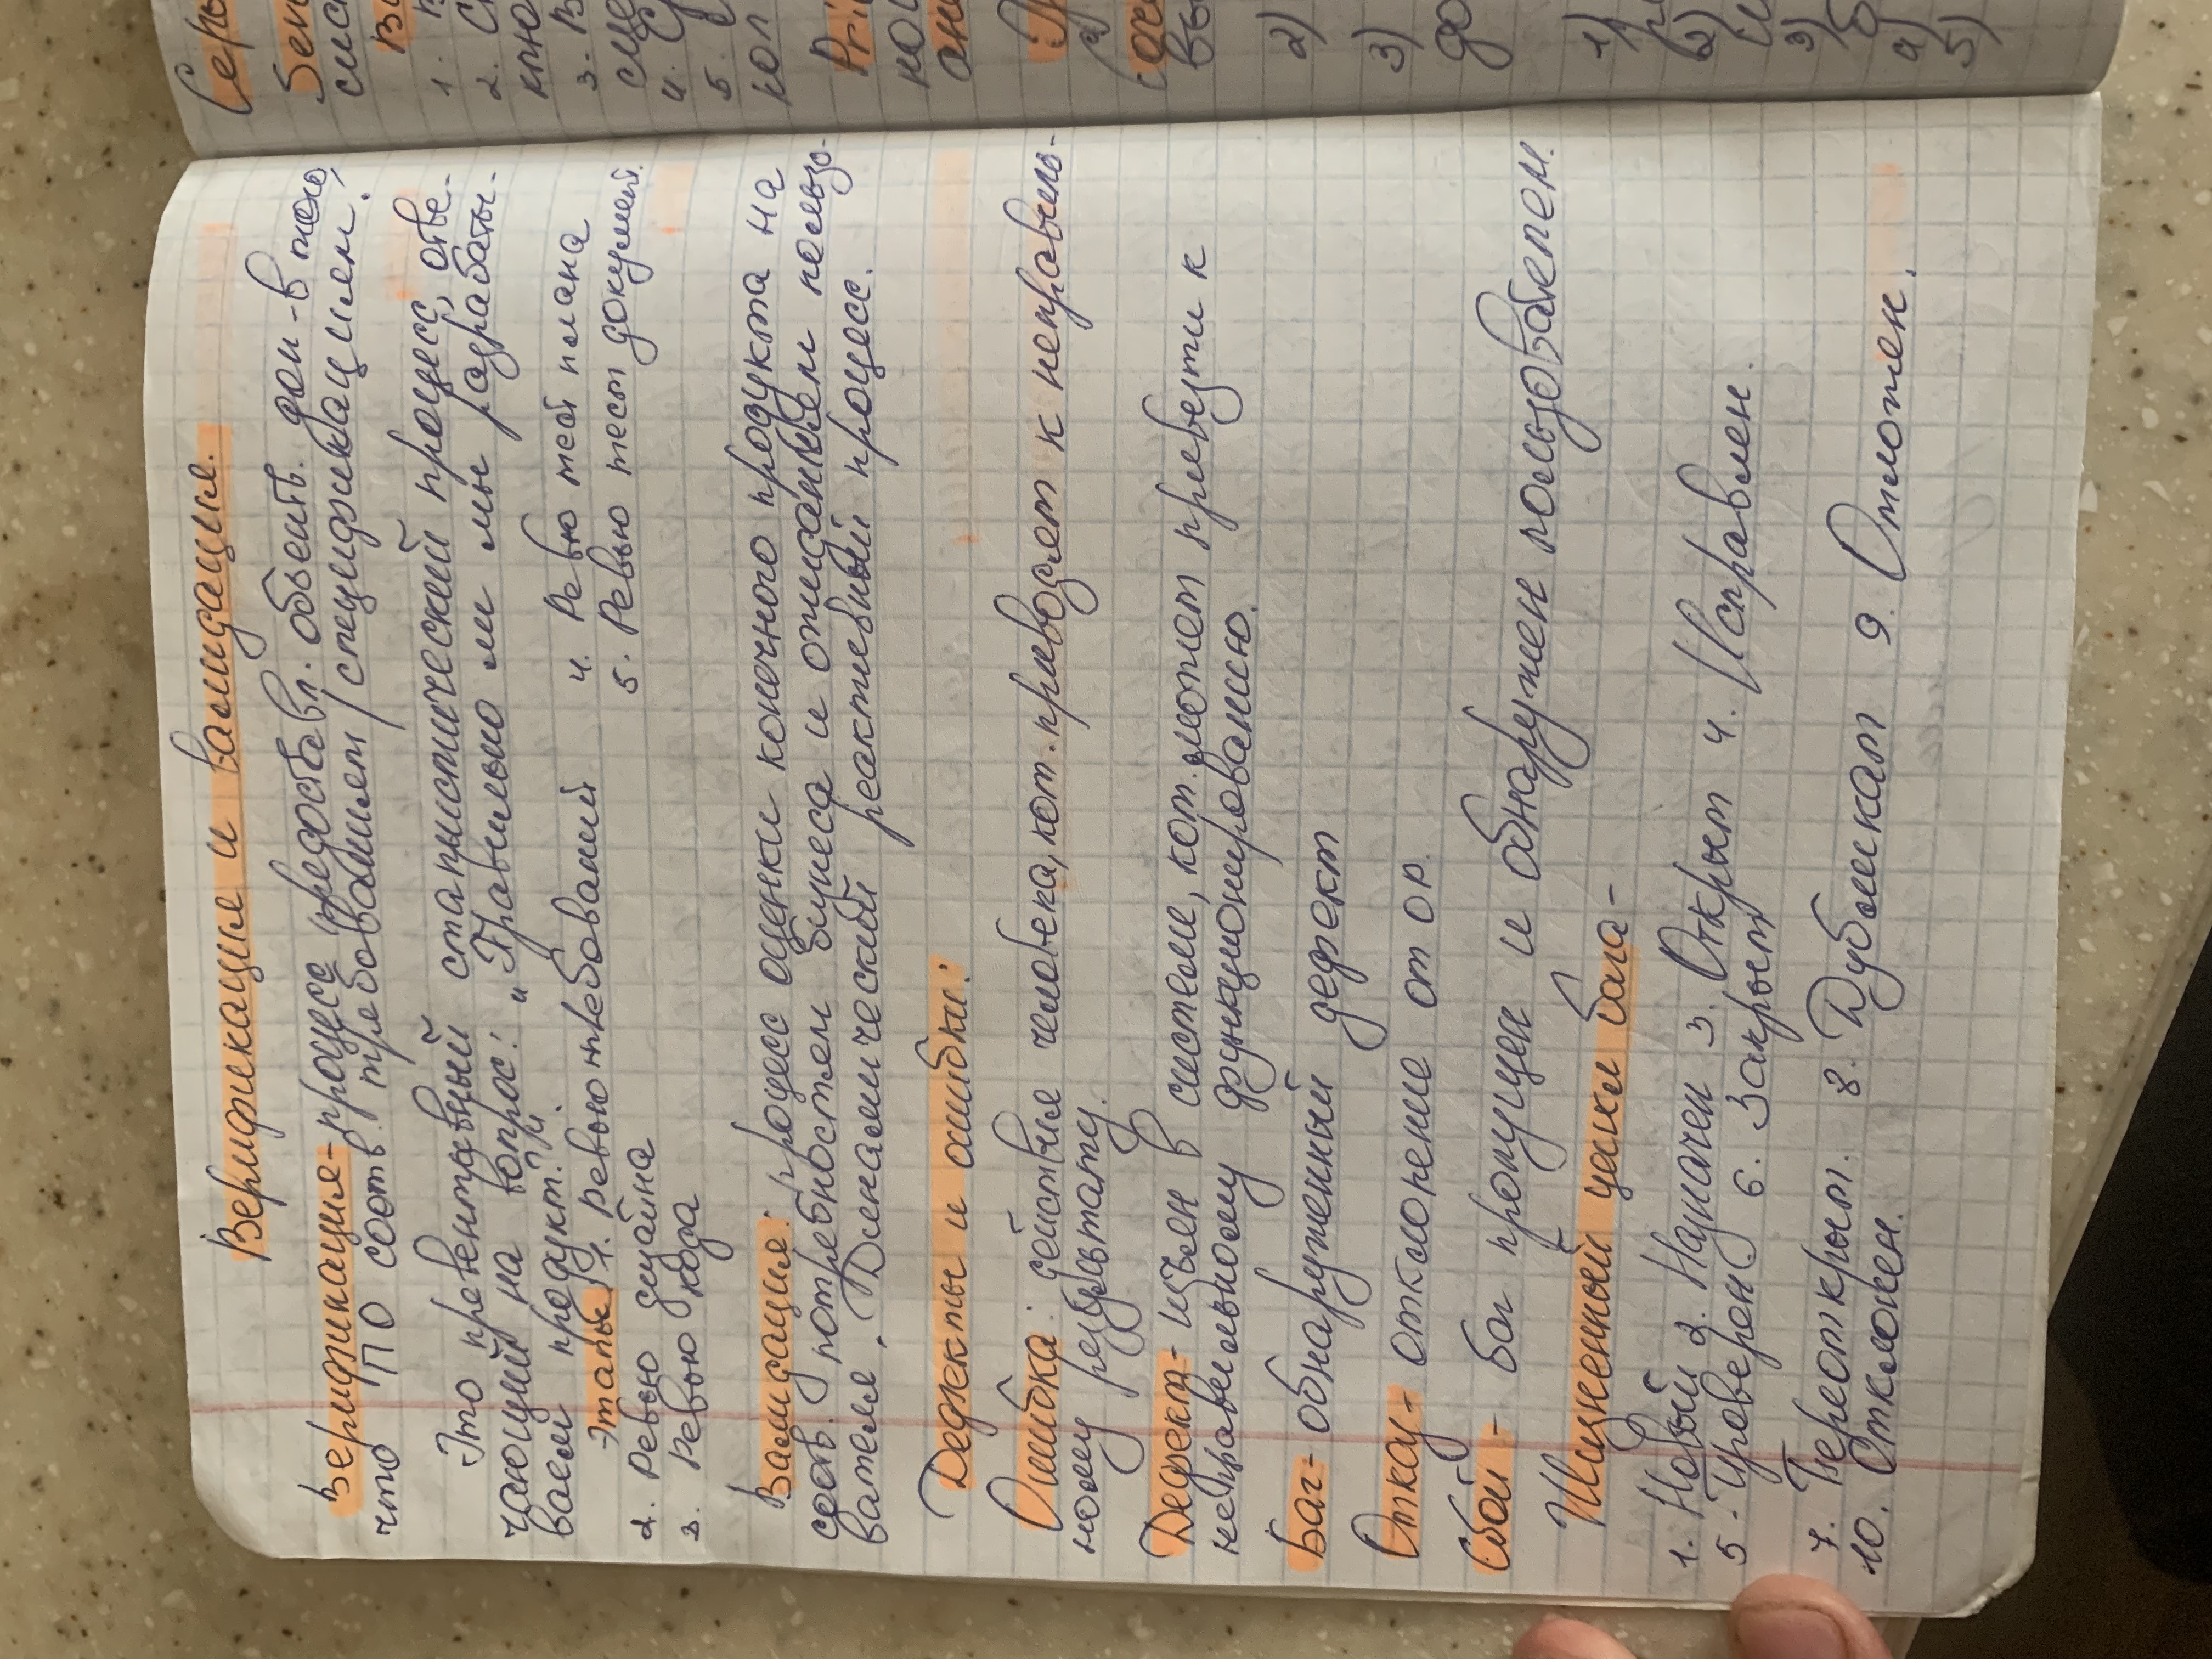 Верификация и валидация.
Верификация - процесс предоставл. объектв. док-в того,
что ПО соотв. требованиям / спецификациям.
Это превентивный статистический процесс, отве-
чающий на вопрос: „Правильно ли мы разрабаты-
ваем продукт?".
Этапы: 1. Ревью требований
2. Ревью дизайна
3. Ревью кода
4. Ревью тест плана
5. Ревью тест документ.
Валидация: процесс оценки конечного продукта на
соотв. потребностям бизнеса и ожиданиям пользо-
вателя. Динамический реактивный процесс.
Дефекты и ошибки:
Ошибка: действия человека, кот. приводят к неправиль-
ному результату.
Дефект - изъян в системе, кот. может привезти к
неправильному функционированию.
Баг - обнаруженный дефект
Отказ - отклонение от ОР.
Сбой - баг пропущен и обнаружен пользователем.
Жизненный цикл бага -
1. Новый 2. Назначен 3. Открыт 4. Исправлен.
5. Проверен. 6. Закрыт
7. Переоткрыт. 8. Дубликат 9. Отложен.
10. Отклонен.
Seve
1.
2.
3. В
4.
5.
кол
Pri
2)
3)
до
1)
2)
3)
5)